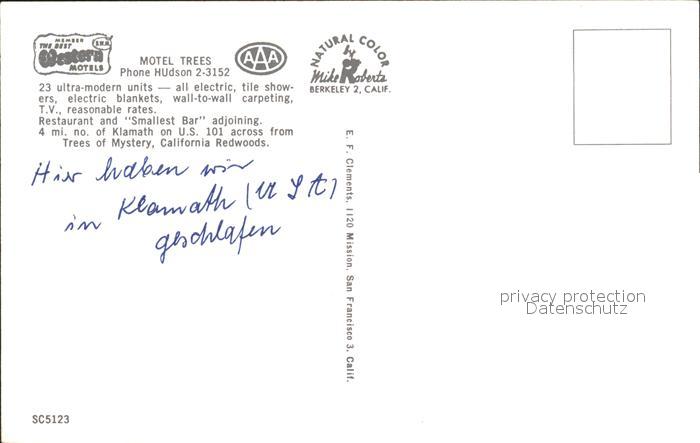 MEMBER
THE BEST
Western
MOTELS
MOTEL TREES
Phone HUdson 2-3152
AAA
NATURAL COLOR
by
Mike Roberts
BERKELEY 2, CALIF.
23 ultra-modern units — all electric, tile show-
ers, electric blankets, wall-to-wall carpeting,
T.V., reasonable rates.
Restaurant and "Smallest Bar" adjoining.
4 mi. no. of Klamath on U.S. 101 across from
Trees of Mystery, California Redwoods.
Hier haben wir
in Klamath (USA)
geschlafen
E. F. Clements, 1120 Mission, San Francisco 3, Calif.
privacy protection
Datenschutz
SC5123